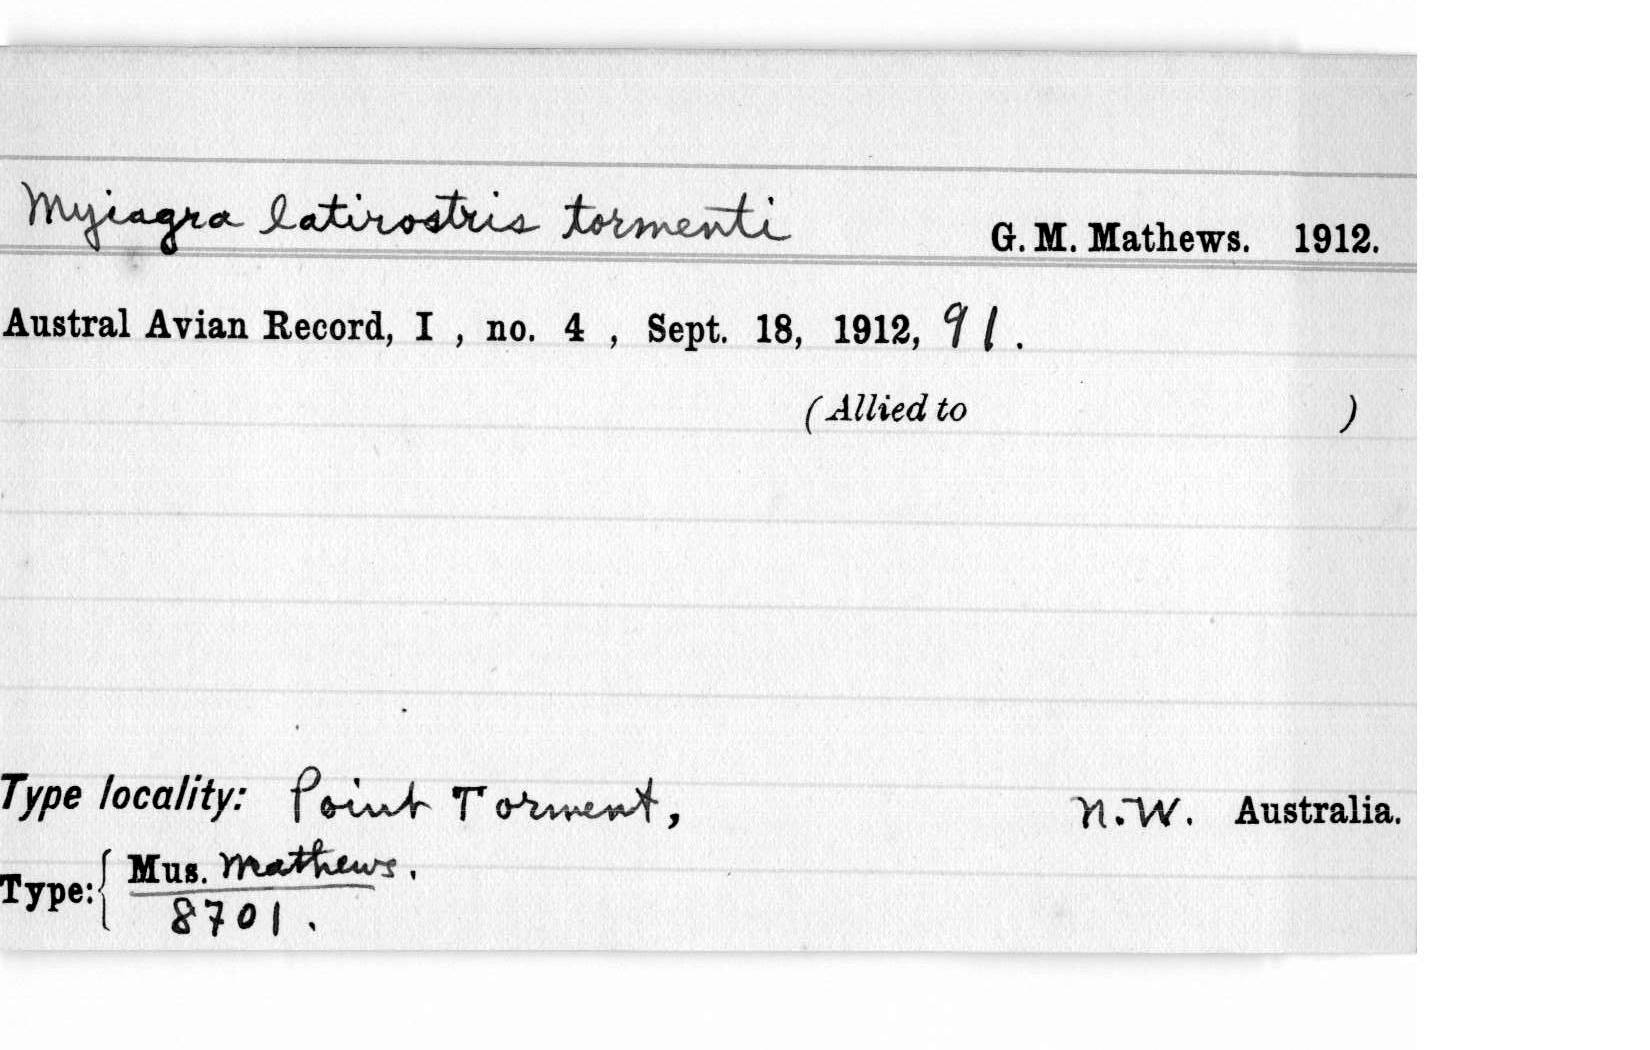 Myiagra latirostris tormenti G. M. Mathews. 1912.
Austral Avian Record, I , no. 4 , Sept. 18, 1912, 91.
(Allied to )
Type locality: Point Torment, N.W. Australia.
Type: { Mus. Mathews.
8701.